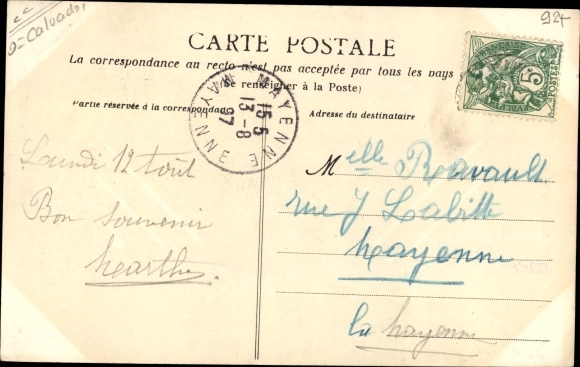 Calvados
924
CARTE POSTALE
La correspondance au recto n'est pas acceptée par tous les pays
(Se renseigner à la Poste)
Partie réservée à la correspondance
Adresse du destinataire
MAYENNE
MAYENNE
15 5
13 - 8
07
5
POSTES
Lundi 12 Août
Bon souvenir
Marthe.
Melle Rouvault
rue J Labitte
Mayenne
la Mayenne